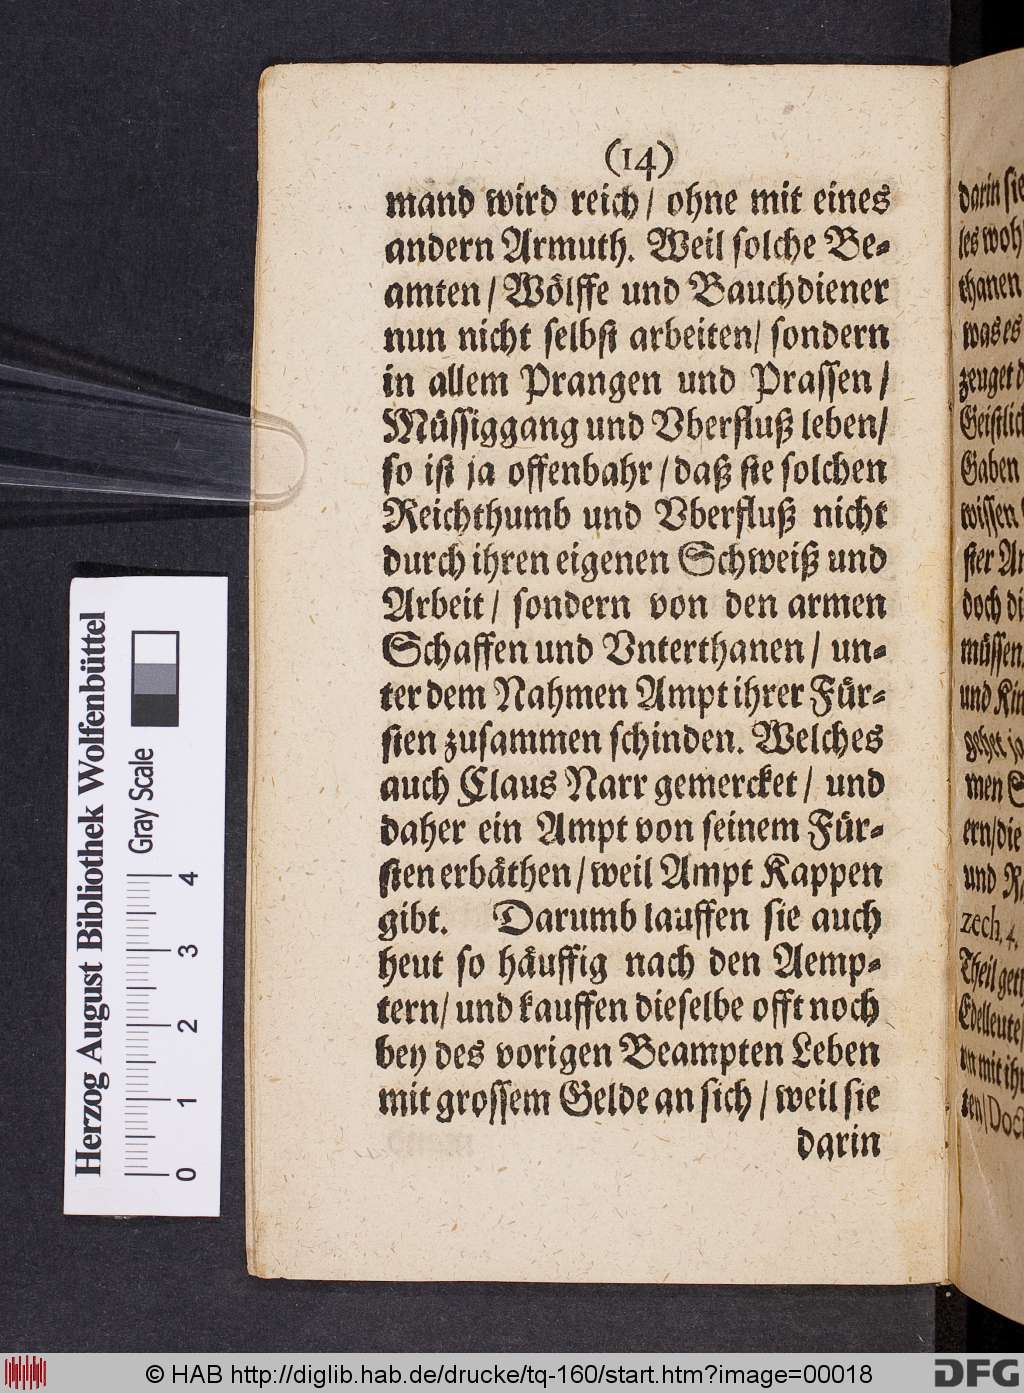 (14)
mand wird reich / ohne mit eines
andern Armuth. Weil ſolche Be⸗
amten / Wölffe und Bauchdiener
nun nicht ſelbſt arbeiten / ſondern
in allem Prangen und Praſſen /
Müſſiggang und Vberfluß leben /
ſo iſt ja offenbahr / daß ſie ſolchen
Reichthumb und Vberfluß nicht
durch ihren eigenen Schweiß und
Arbeit / ſondern von den armen
Schaffen und Vnterthanen / un⸗
ter dem Nahmen Ampt ihrer Für⸗
ſten zuſammen ſchinden. Welches
auch Claus Narr gemercket / und
daher ein Ampt von ſeinem Für⸗
ſten erbäthen / weil Ampt Kappen
gibt. Darumb lauffen ſie auch
heut ſo häuffig nach den Aemp⸗
tern / und kauffen dieſelbe offt noch
bey des vorigen Beampten Leben
mit groſſem Gelde an ſich / weil ſie
darin
darin ſie
les woh
thanen
was es
zeuget d
Geiſtlich
Gaben
wiſſen.
ſter Ar
doch di
müſſen.
und Kin
gehet. ja
men S
ern / die
und R
zech. 4.
Theil get
Edelleute /
ten / Doc
Herzog August Bibliothek Wolfenbüttel
Gray Scale
0 1 2 3 4
© HAB http://diglib.hab.de/drucke/tq-160/start.htm?image=00018
DFG